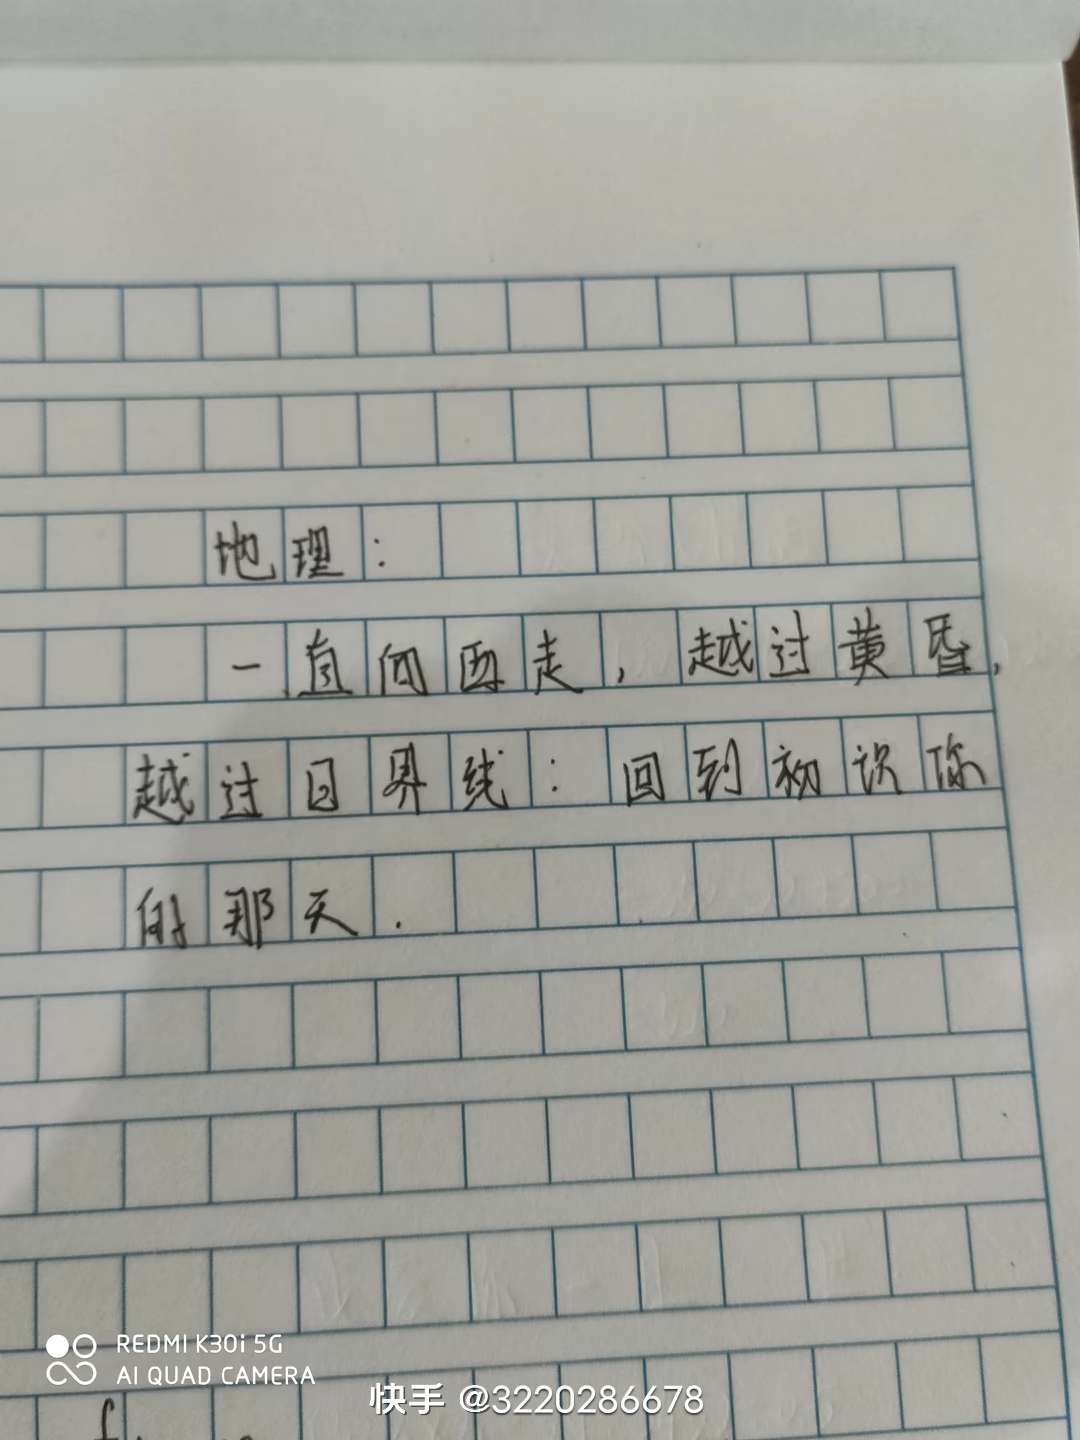 地理：
一直向西走，越过黄昏，
越过日界线：回到初识你
的那天.
REDMI K30i 5G
AI QUAD CAMERA
快手 @3220286678